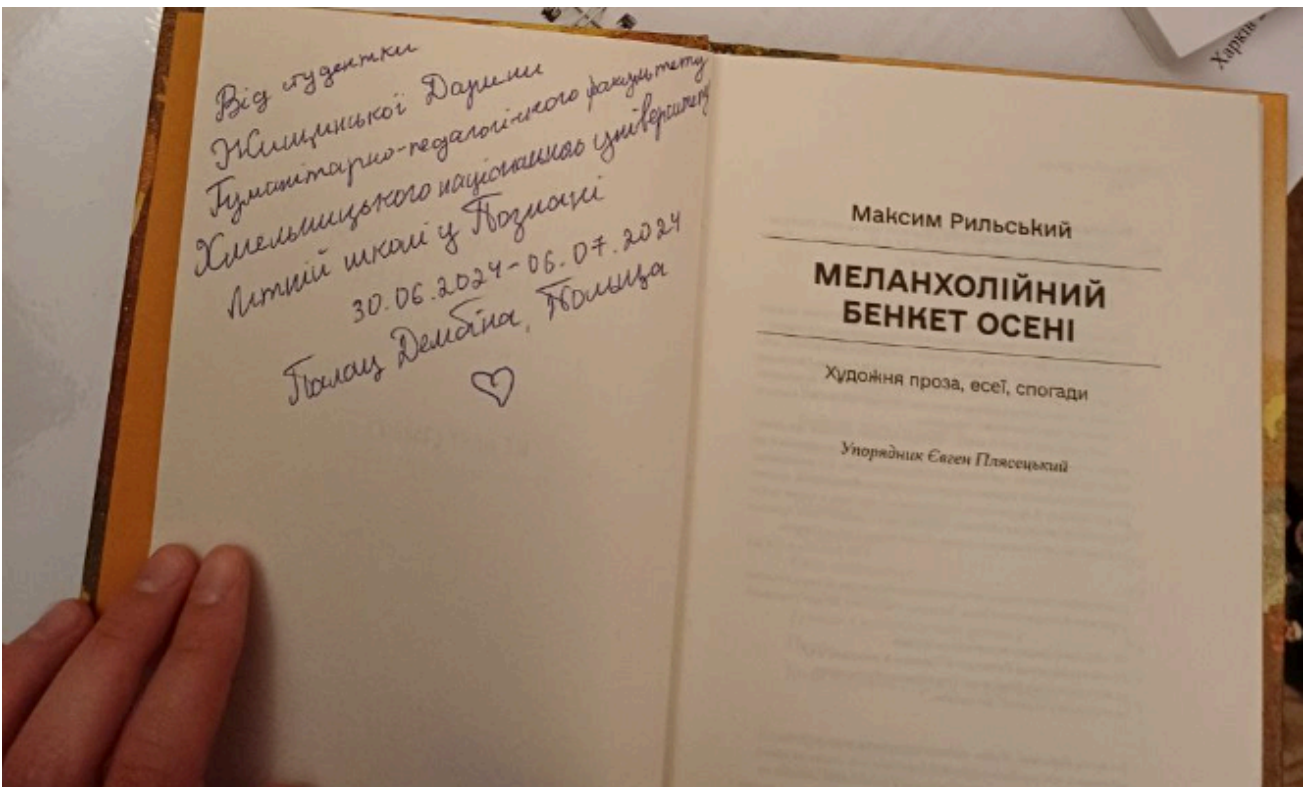 Від студентки
Жищинської Дарини
Гуманітарно-педагогічного факультету
Хмельницького національного університету
Літній школі у Познані
30.06.2024-06.07.2024
Палац Дембіна, Польща
Максим Рильський
МЕЛАНХОЛІЙНИЙ
БЕНКЕТ ОСЕНІ
Художня проза, есеї, спогади
Упорядник Євген Плясецький
Харків